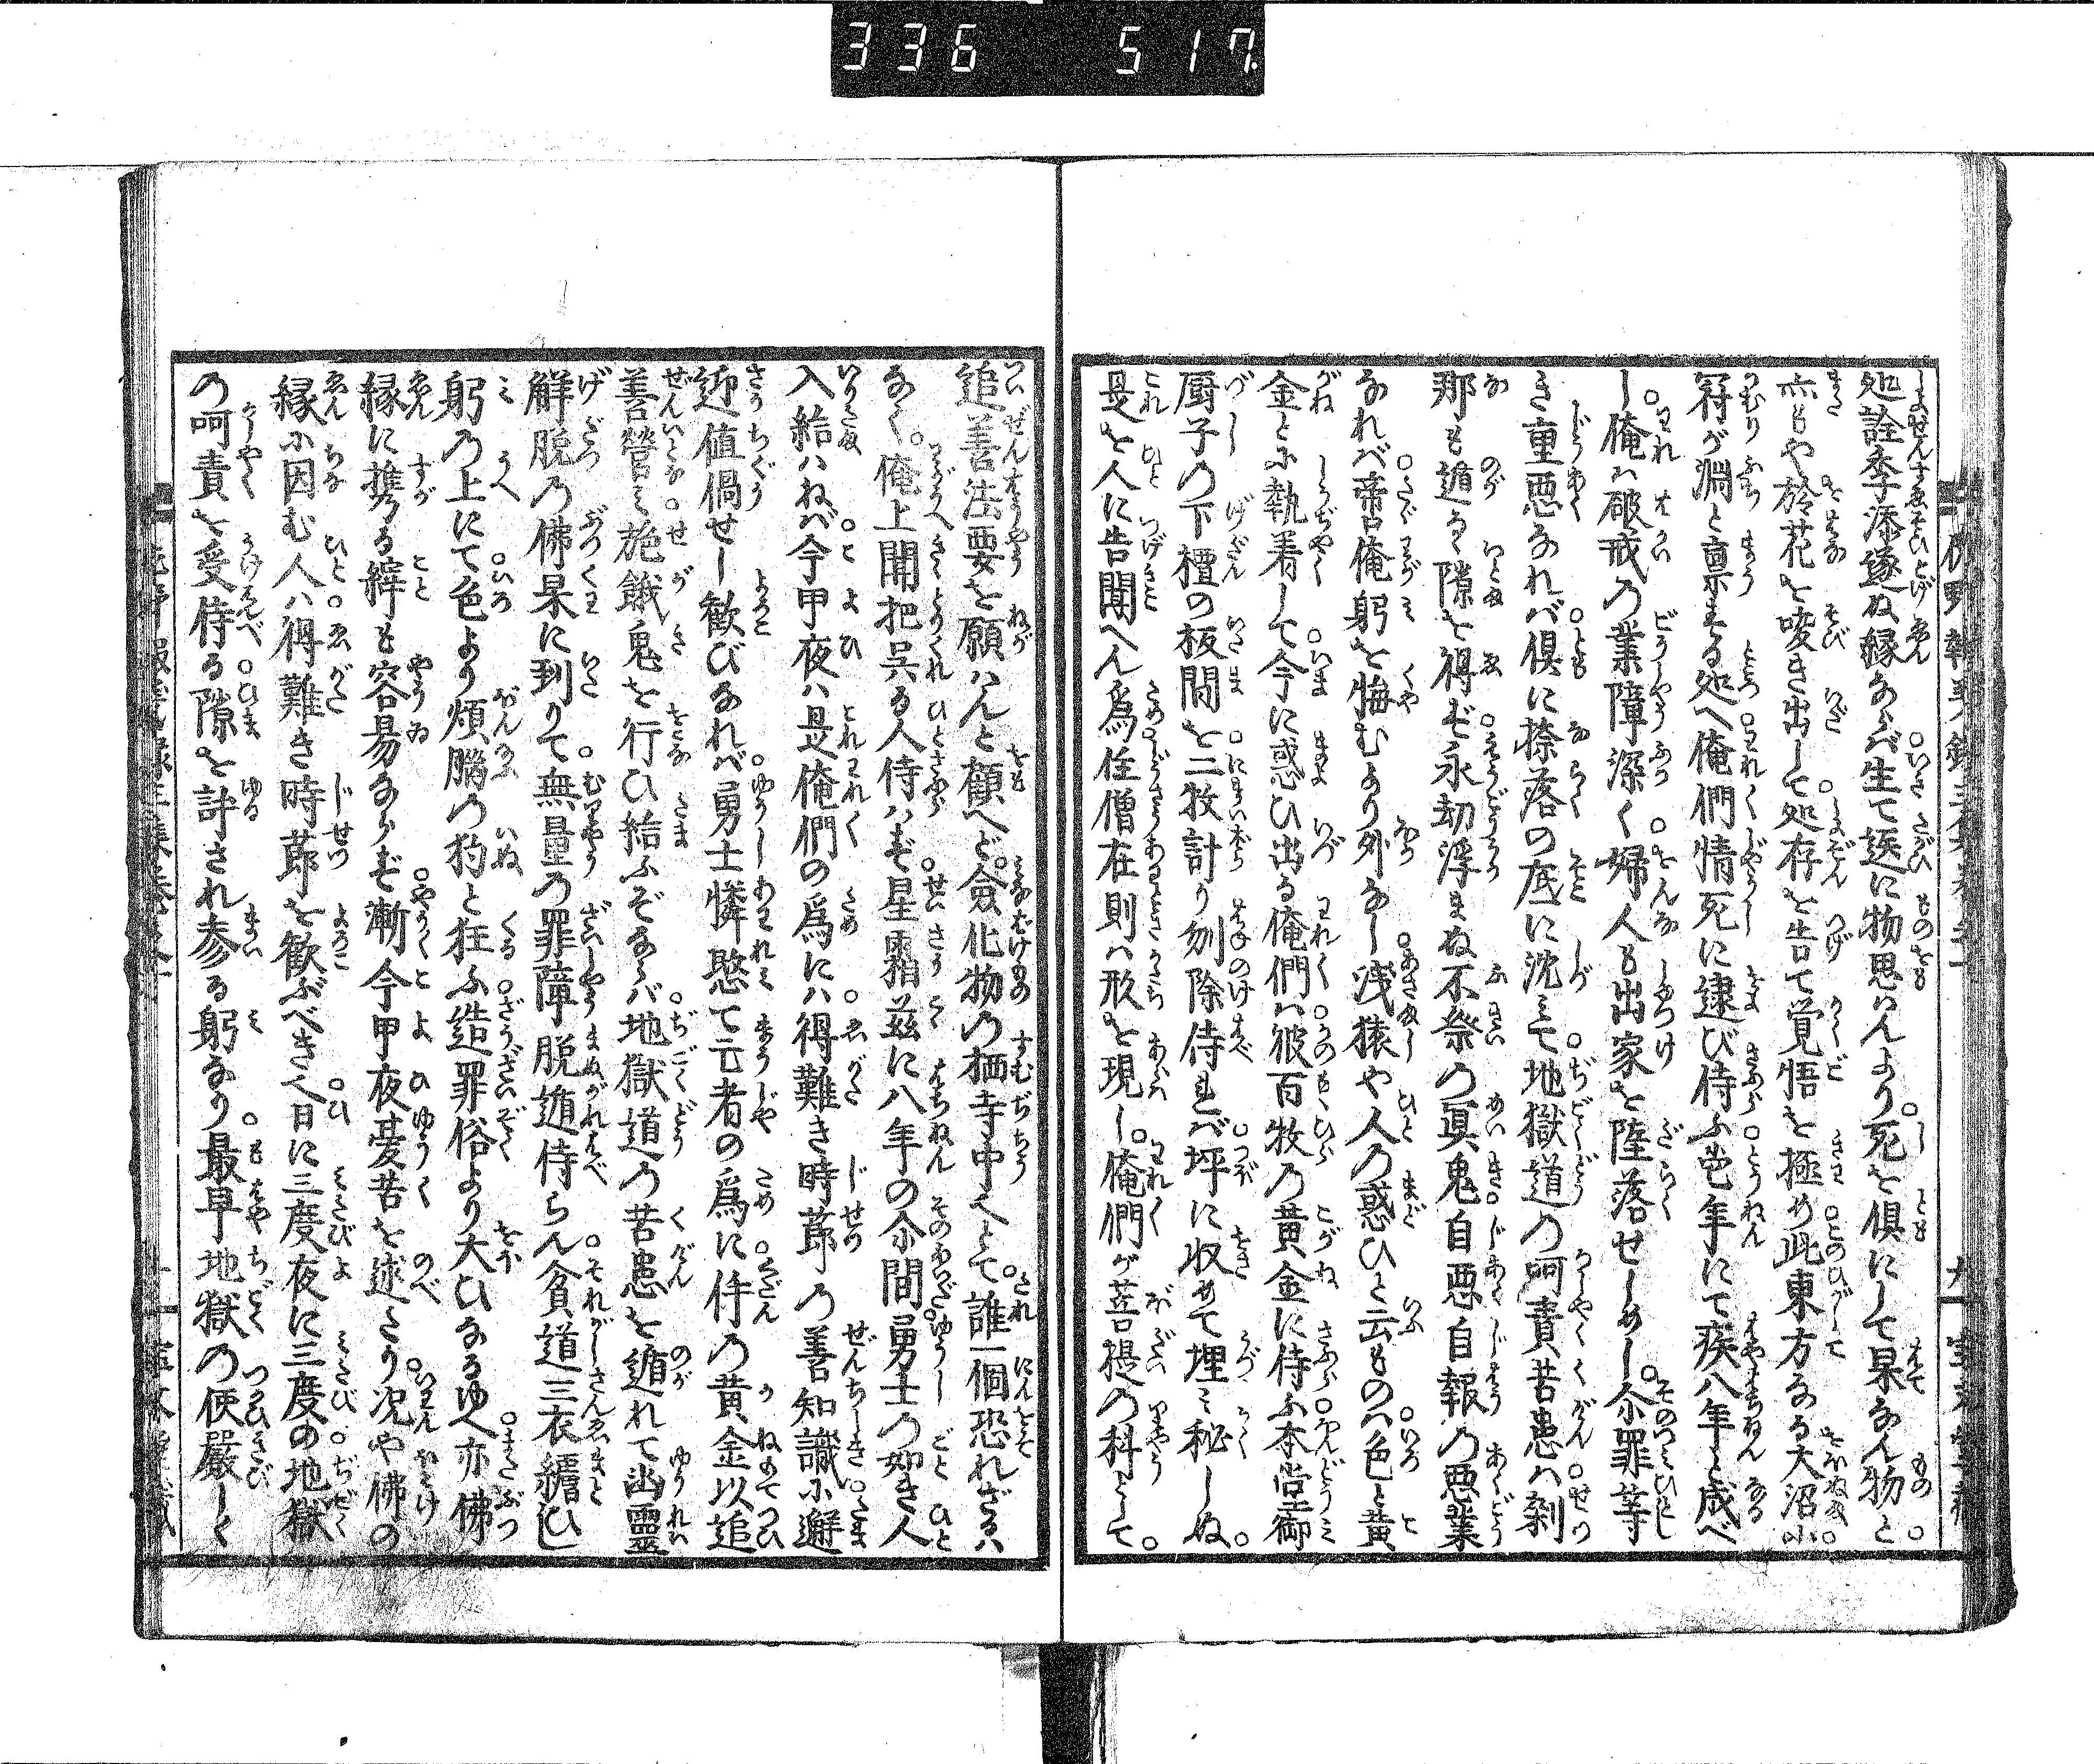 336 517
処詮季添遂ぬ縁ならバ生て迭に物思はんより。死を倶にして果なん物と。
亦もや於花を唆き出して。処存を告て覚悟を極め此東方なる大沼に。
符が淵と稟まる処へ俺們情死に逮び侍ふ。當年にて疾八年と成べ
し。俺は破戒の業障深く。婦人も出家を陸落せしめし。尒罪等
き重悪なれバ。倶に捺落の底に沈ミて。地獄道の呵責苦患ハ。刹
那も遁るゝ隙を得ず。永劫浮まぬ不祭の冥鬼。自悪自報の悪業
なれバ。帝俺躬を悔むより外なし。浅猿や人の惑ひと云ものハ。色と黄
金とに執着して。今に惑ひ出る俺們ハ。彼百枚の黄金に侍ふ。本堂御
厨子の下檀の板間を。二枚計り刎除侍れバ。坪に収めて埋ミ秘しぬ。
是を人に告聞へん為。住僧在則ハ形を現し。俺們が菩提の科として。
追善法要を願ハんと顧へど。僉化物の栖寺中〱とて。誰一個恐れざるハ
なく。俺上聞把呉る人侍ハず。星霜茲に八年の尒間。勇士の如き人
入給ハねバ。今甲夜ハ是俺們の為にハ。得難き時節の善知識に。邂
逅値偈せし歓びなれバ。勇士憐愍て亡者の為に。件の黄金以追
善営ミ。施餓鬼を行ひ給ふぞならバ。地獄道の苦患を遁れて幽霊
解脱の佛果に到りて。無量の罪障脱遁侍らん。貧道三衣纏ひし
躬の上にて。色より煩脳の狗と狂ふ。造罪俗より大ひなるゆへ。亦佛
縁に携る縡も容易ならず。漸今甲夜憂苦を述たり。況や佛の
縁に因む人ハ。得難き時節を歓ぶべき〱。日に三度夜に三度の。地獄
の呵責を受侍る。隙を許され参る躬なり。最早地獄の使嚴しく